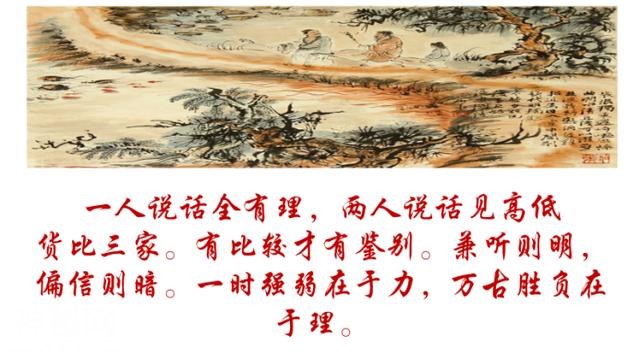 一人说话全有理，两人说话见高低
货比三家。有比较才有鉴别。兼听则明，
偏信则暗。一时强弱在于力，万古胜负在
于理。